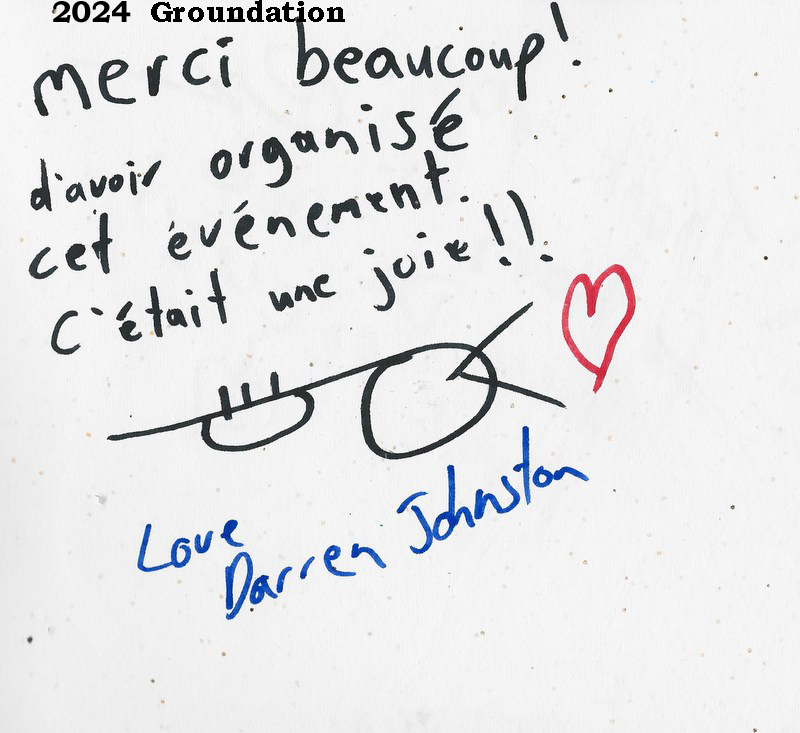 2024 Groundation
merci beaucoup!
d'avoir organisé
cet événement.
C'était une joie!!
Love
Darren Johnston